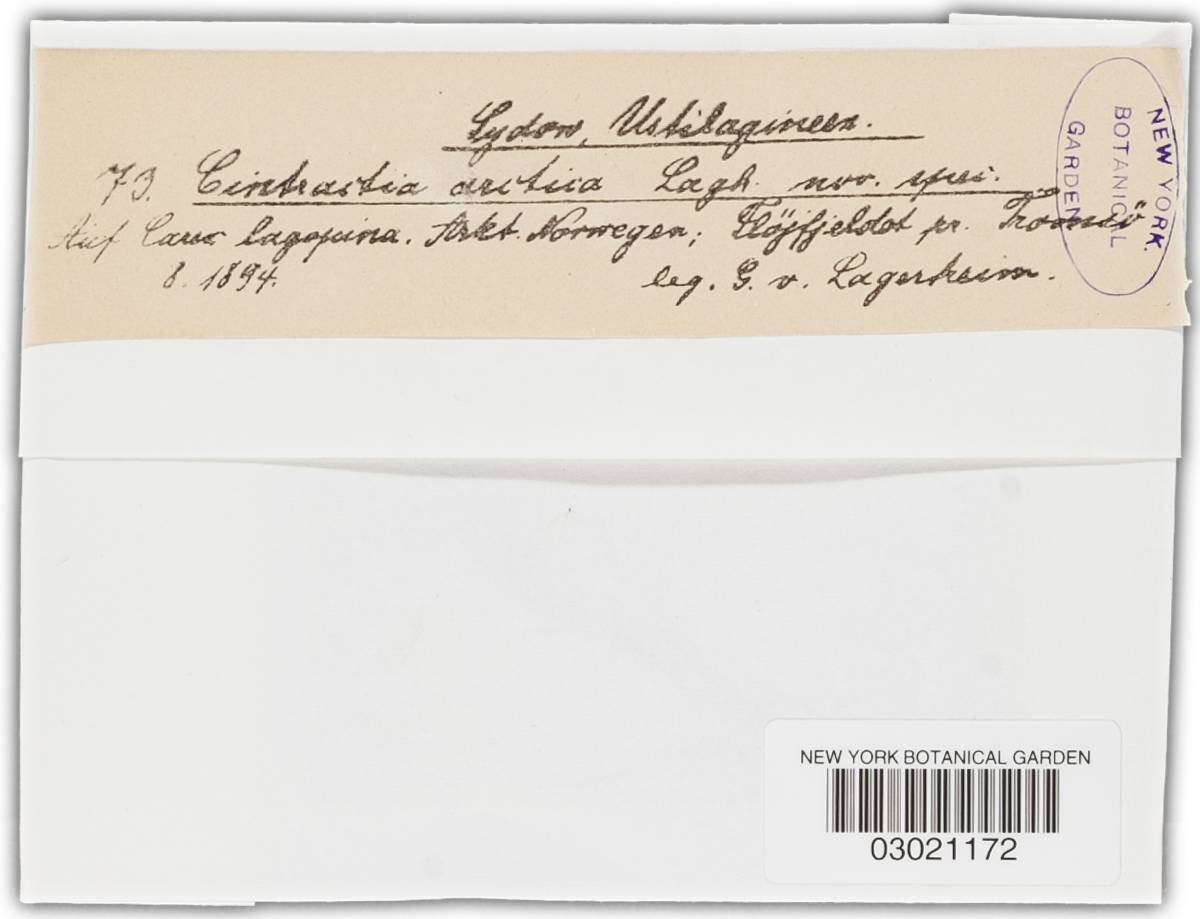 Sydow, Ustilagineen.
73. Cintractia arctica Lagh. nov. spec.
Auf Carex lagopina. Arkt. Norwegen; Fløjfjeldet pr. Tromsö
8. 1894. leg. G. v. Lagerheim.
NEW YORK
BOTANICAL
GARDEN
NEW YORK BOTANICAL GARDEN
03021172